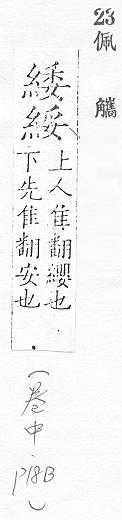 23佩觿
緌綏
上人隹翻纓也
下先隹翻安也
(卷中 P18B)